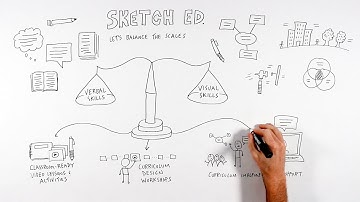 SKETCH ED.
LET'S BALANCE THE SCALES
VERBAL
SKILLS
VISUAL
SKILLS
CLASSROOM-READY
VIDEO LESSONS +
ACTIVITIES
CURRICULUM
DESIGN
WORKSHOPS
CURRICULUM